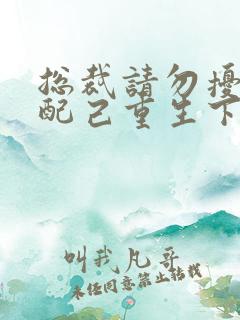 总裁請勿擾
配己重生下
叫我凡哥
未经同意禁止转载